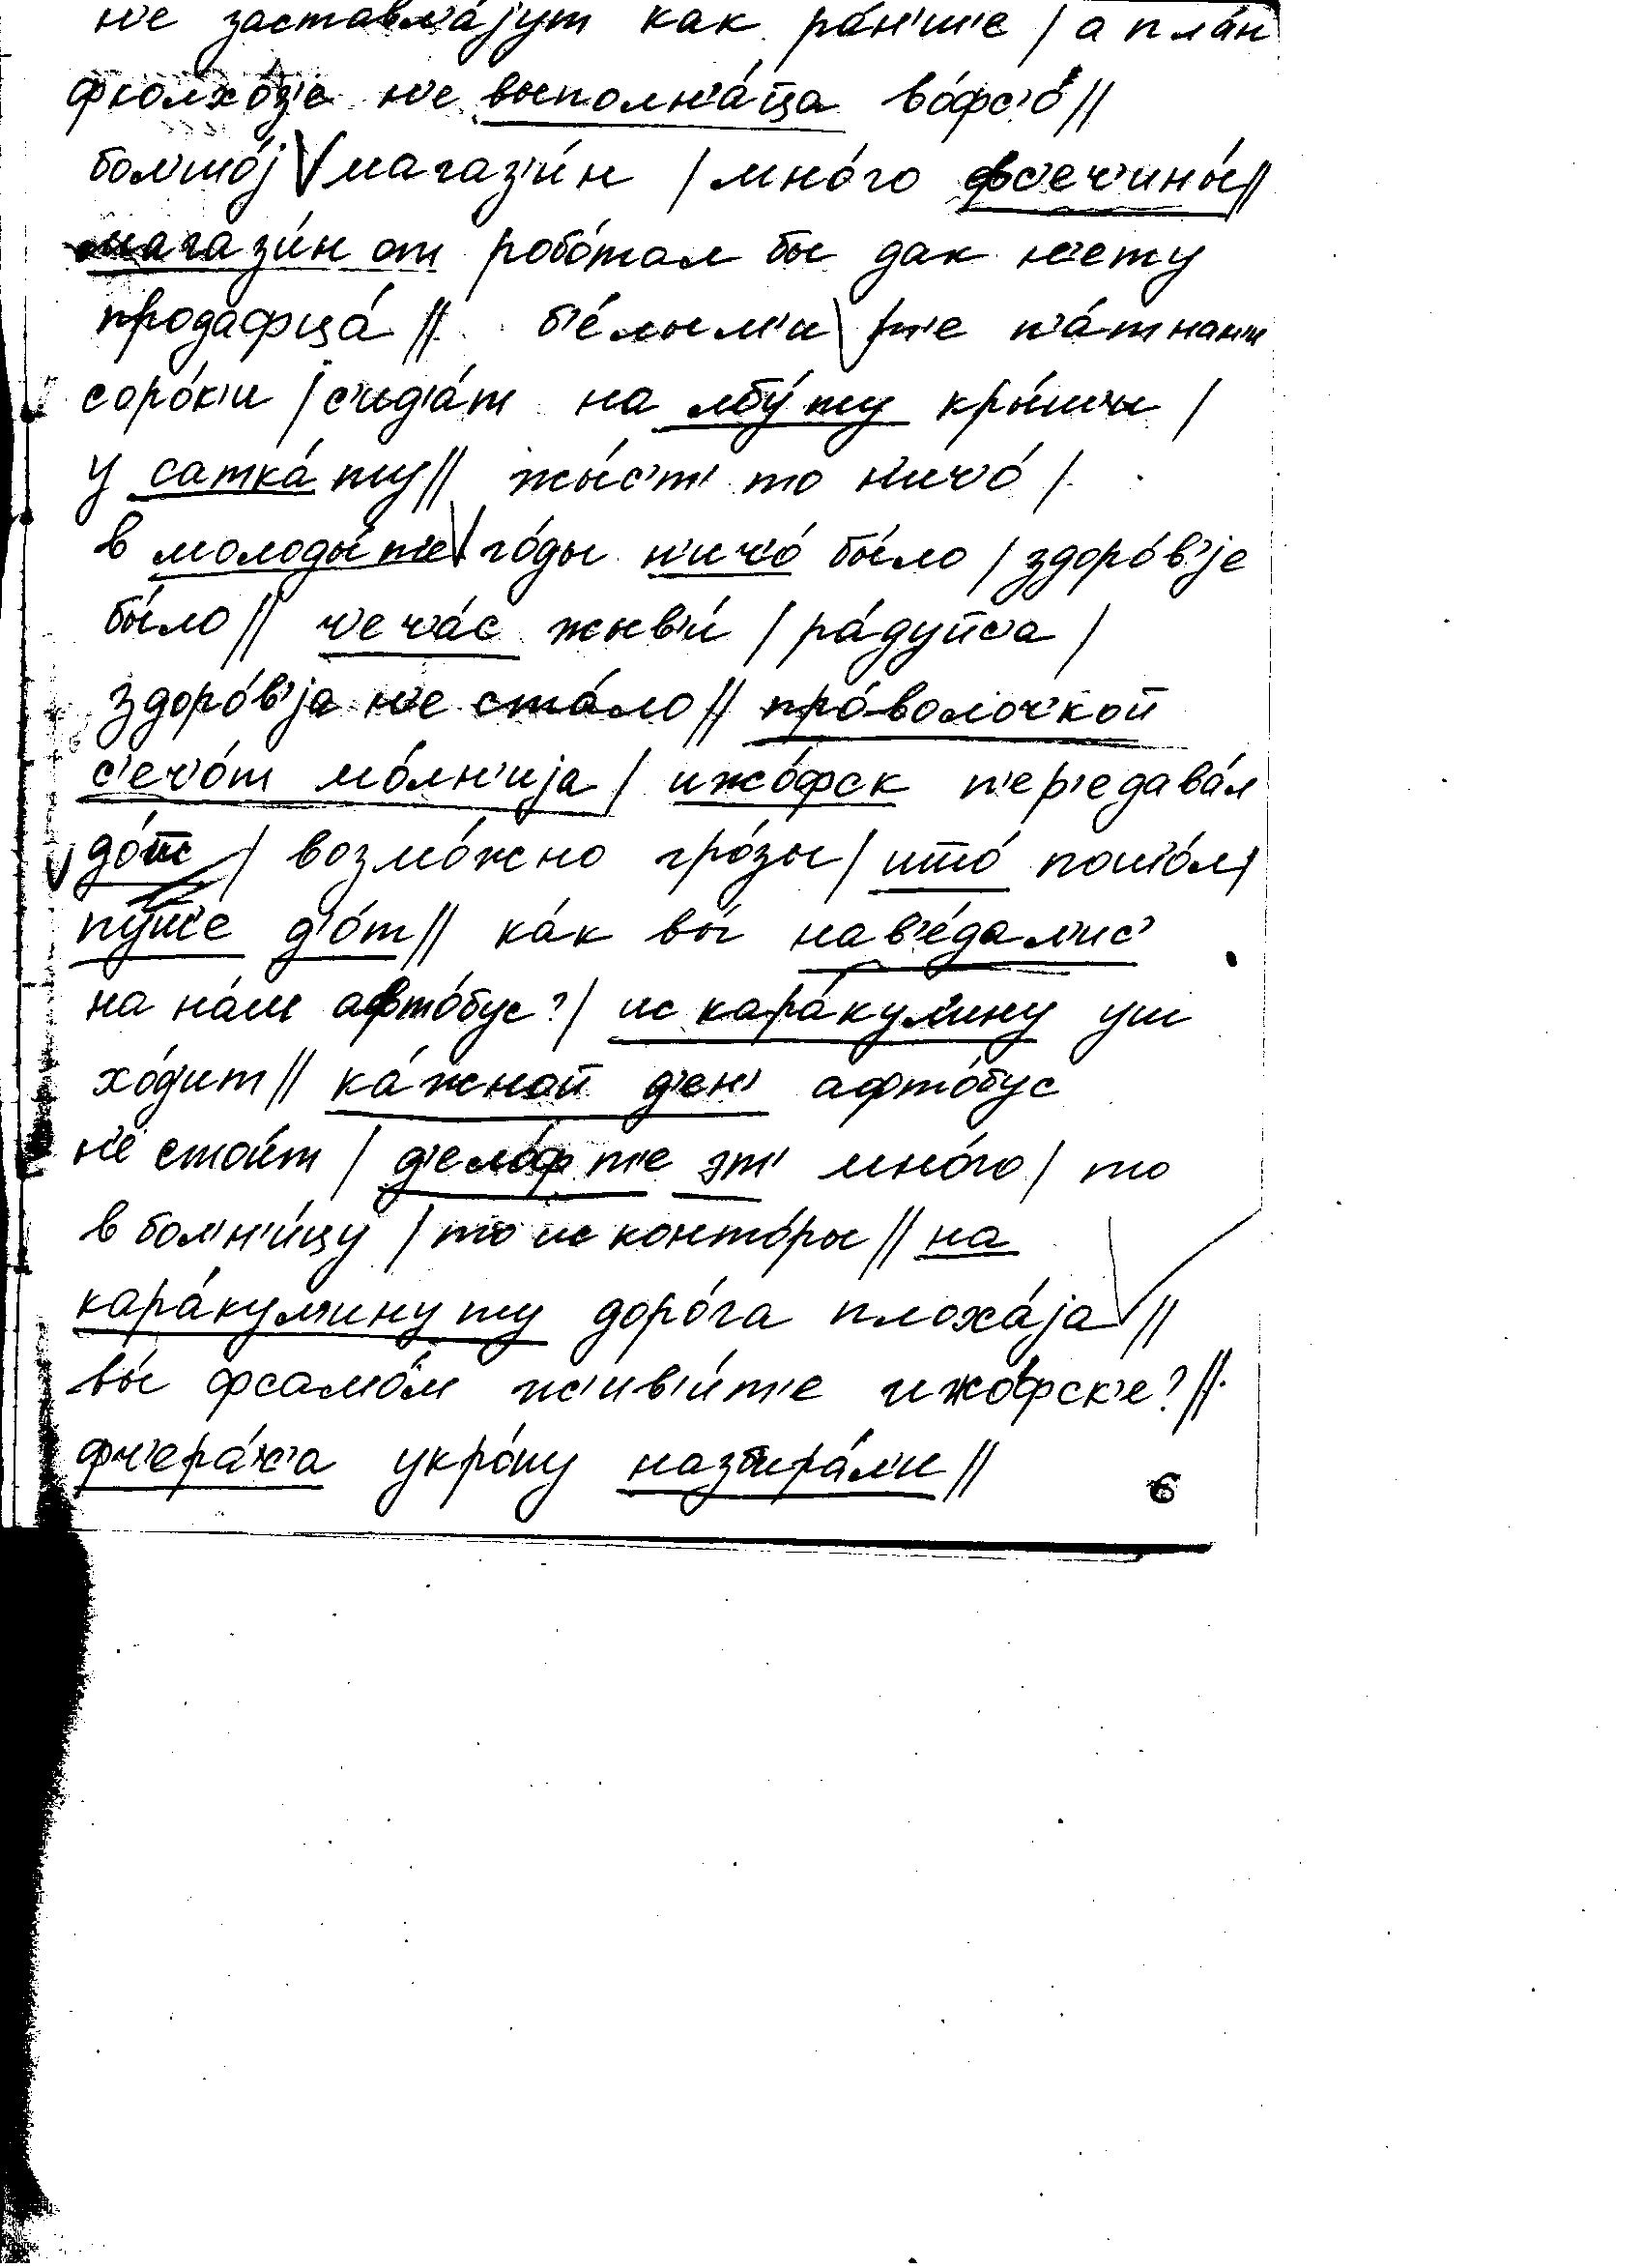 н'е заставл'а́јут как ра́н'ш'е / а пла́н
фколхо́з'е н'е выполн'а́ца во́фс'о //
бол'шо́ј магаз'и́н / мно́го фс'еч'ины́ //
магази́н от робо́тал бы дак н'ету
продафца́ // б'е́лым'и т'е п'а́тнам'и
соро́к'и / с'ид'а́т на лбу́ ту кры́шы /
у сатка́ ту // жы́с'т' то н'ич'о́ /
в молоды́ т'е го́ды н'ич'о́ бы́ло / здоро́в'је
бы́ло // ч'еч'а́с жыв'и́ / ра́дуйс'а /
здоро́в'ја н'е ста́ло // про́волоч'кой
с'еч'о́т мо́лн'ија / ижо́фск п'ер'едава́л
до́ш / возмо́жно гро́зы / што́ пошо́л /
пу́ш'е д'о́т // ка́к вы́ нав'е́дал'ис'
на на́ш афто́бус? / ис кара́кул'ину уш
хо́д'ит // ка́жной д'ен' афто́бус
н'е стои́т / д'ело́ф т'е эт' мно́го / то
в бол'н'и́цу / то ис конто́ры // на
кара́кул'ину ту доро́га плоха́ја //
вы́ фсамо́м жив'и́т'е ижо́фск'е? //
фч'ера́с'а укро́пу назбира́л'и //
6